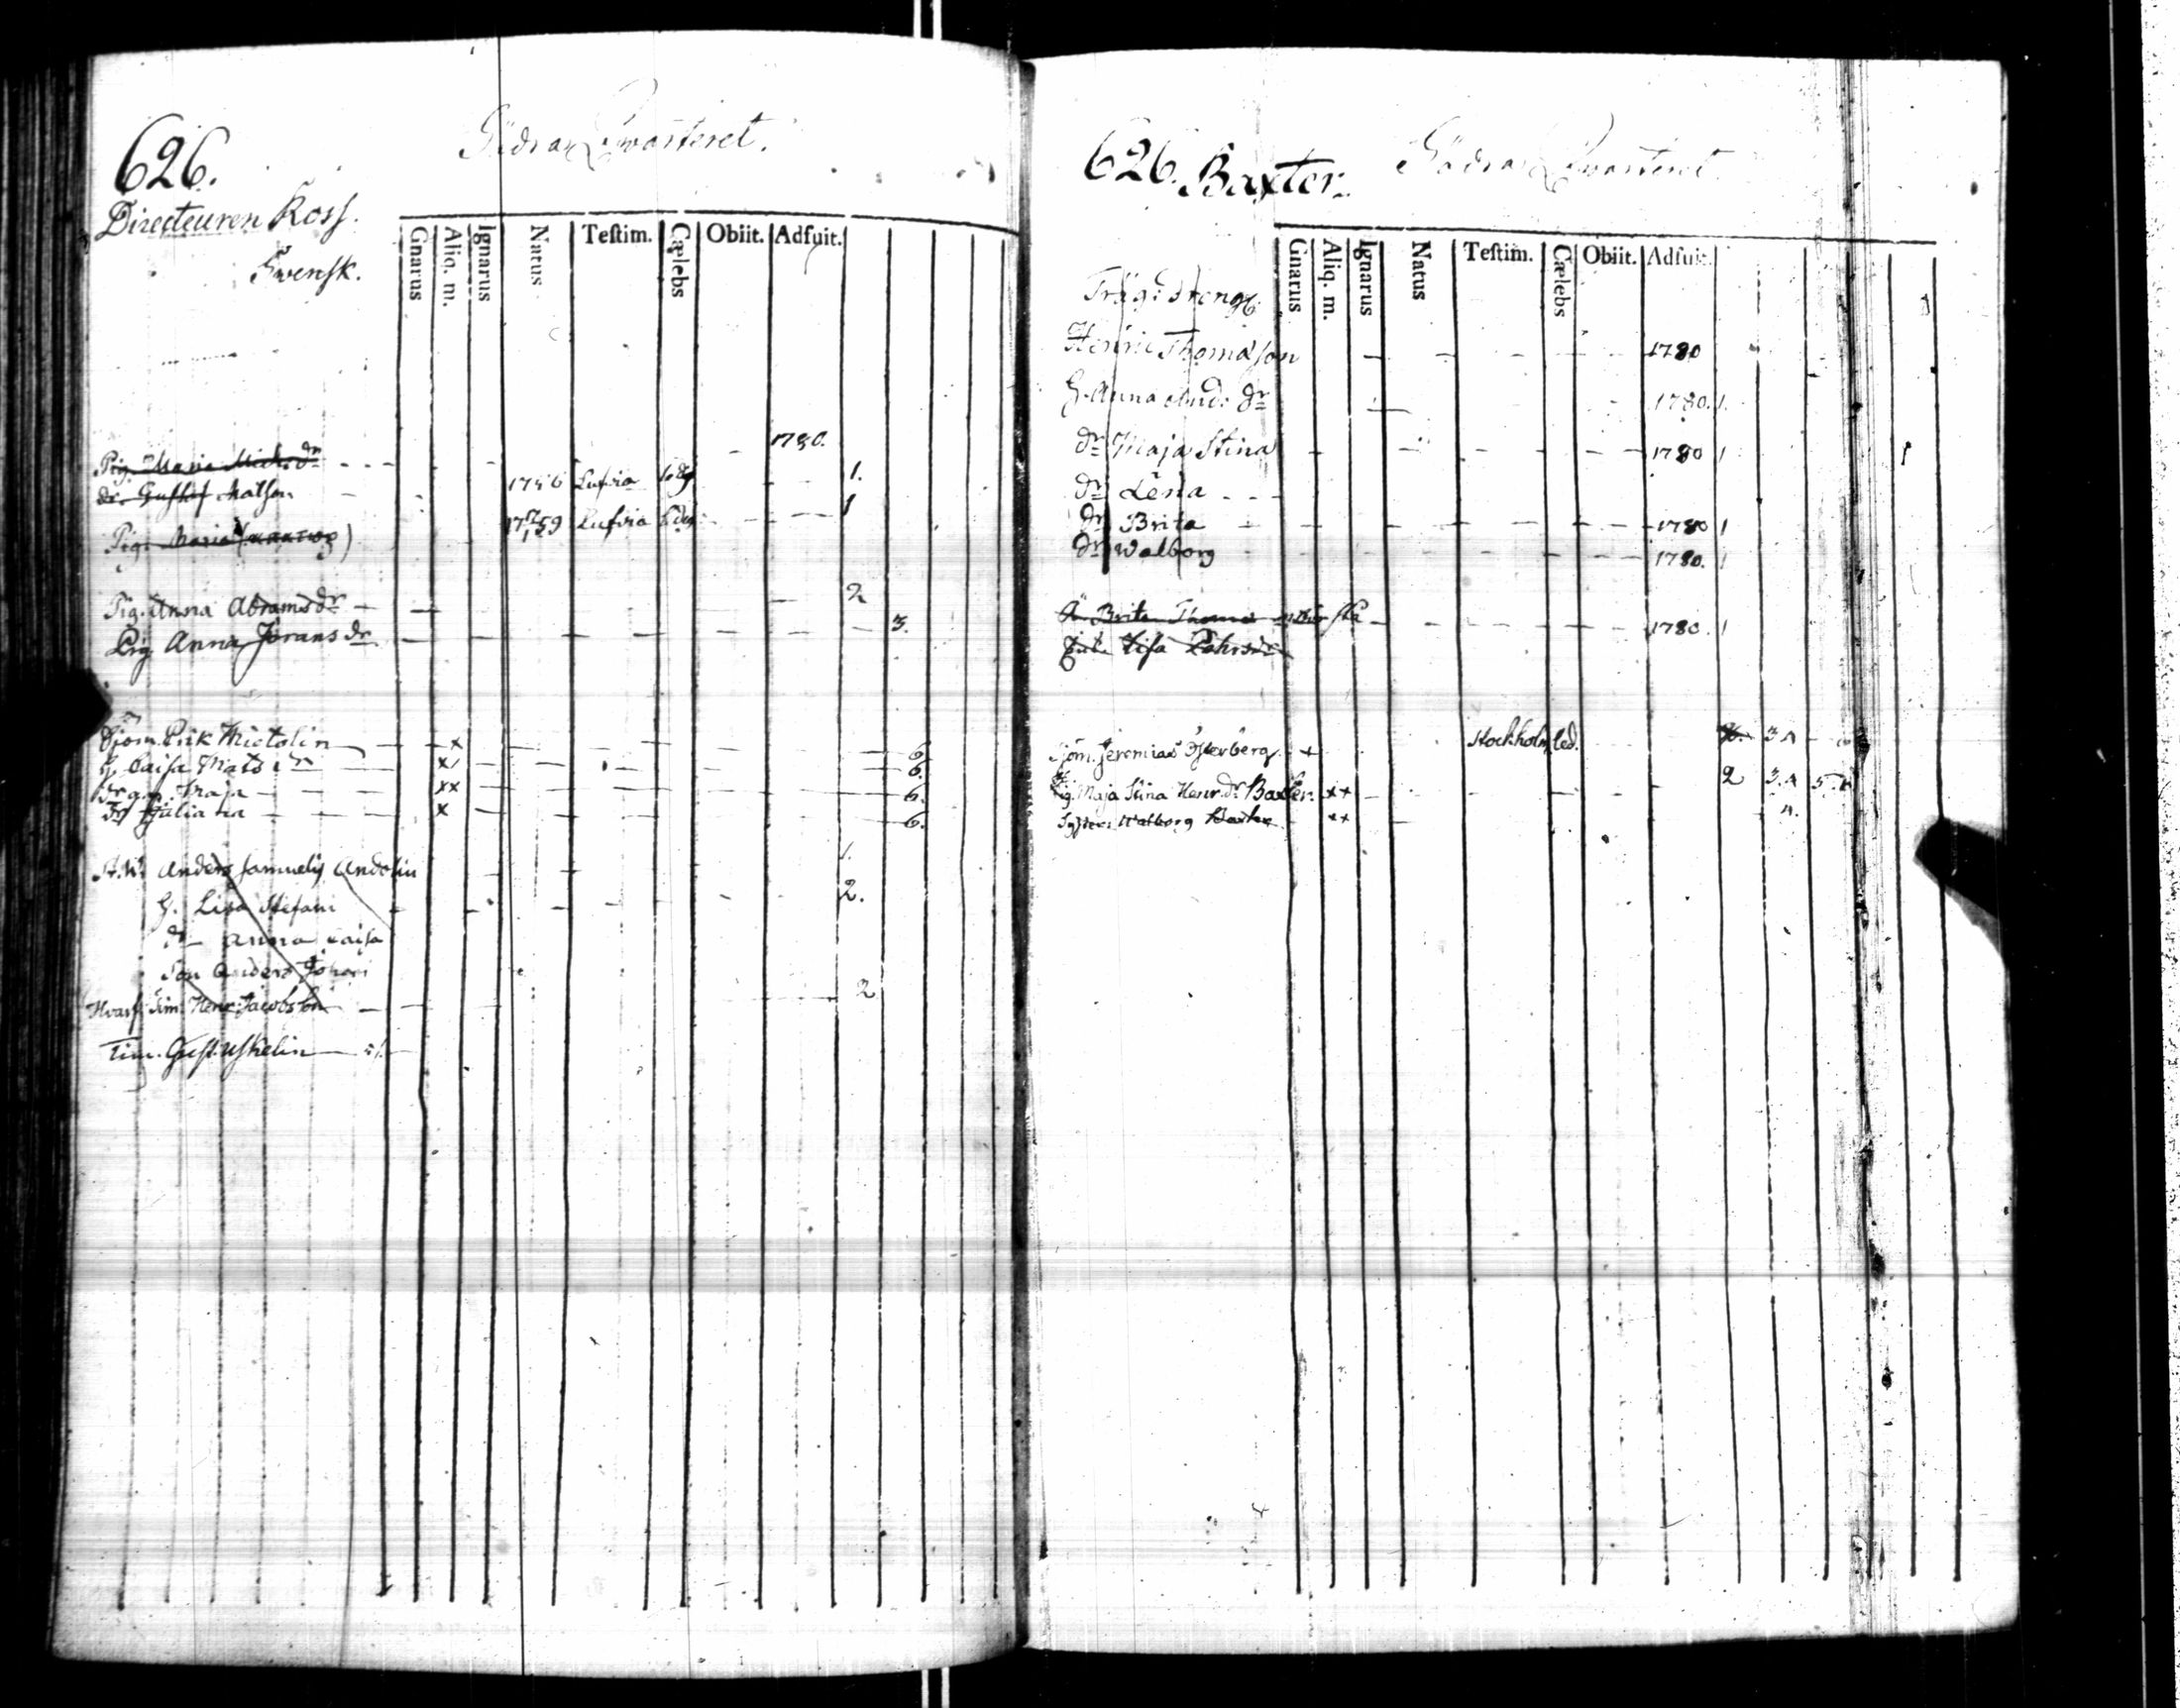 626.
Södra Qvarteret.
Directeuren Ross.
Svensk.
Gnarus Aliq. m. Ignarus Natus Teſtim. Cælebs Obiit. Adfuit.
Pig. Maria Mich. dr 1780.
dr. Gustaf Matson 1756 Lufvia led. 1.
Pig. Maria 1759 Lufvia led. 1
Pig. Anna Abrams dr 2
Pig Anna Jörans dr 3.
Sjöm. Erik Mictolin x 6.
H. Caisa Mats dr x 6.
Maja xx 6.
dr Juliana x 6.
Anders Samuels Andolin 1.
H. Lisa Stefani 2.
dr Anna Caisa
Son Anders Johan
Hvarf Tim. Henr. Jacobsson 2
Tim. Gust. Uskelin
626. Baxter.
Södra Qvarteret
Gnarus Aliq. m. Ignarus Natus Teſtim. Cælebs Obiit. Adfuit.
Träg: dreng
Henric Thomasson 1780
H. Anna And: dr 1780. 1.
dr Maja Stina 1780 1
dr Lena
dr Brita 1780 1
dr Walborg 1780. 1
Brita Thomas 1780. 1
Lisa
Sjöm. Jeremias Österberg + Stockholm led. 3.
Pig. Maja Stina Henr. dr Baxter. ++ 2 3. 5.
Syster Walborg Baxter ++ 4.